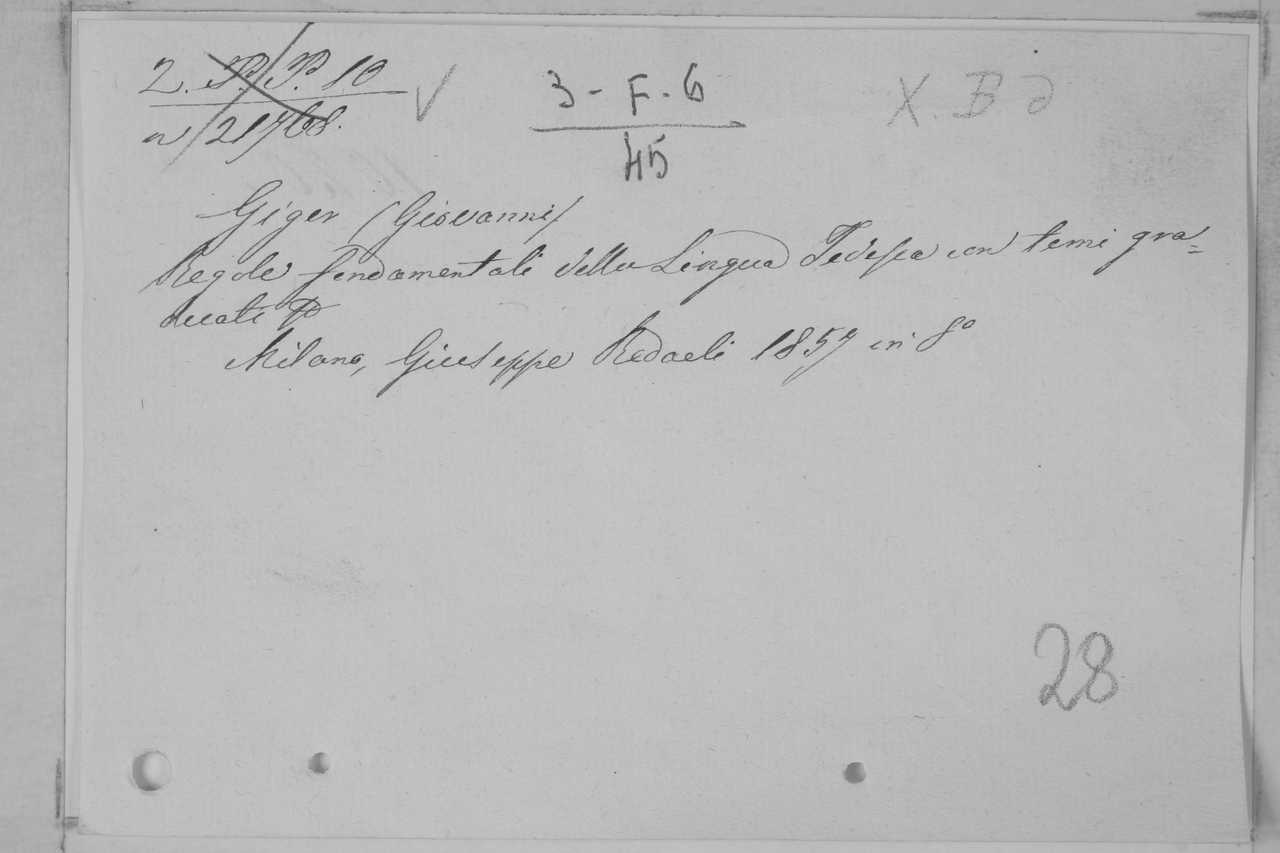 2. P. P. 10
n 21768.
3 - F. 6
45
X. B
Giger (Giovanni)
Regole fondamentali della Lingua Tedesca con temi gra=
duati
Milano, Giuseppe Redaeli 1857 in 8º
28